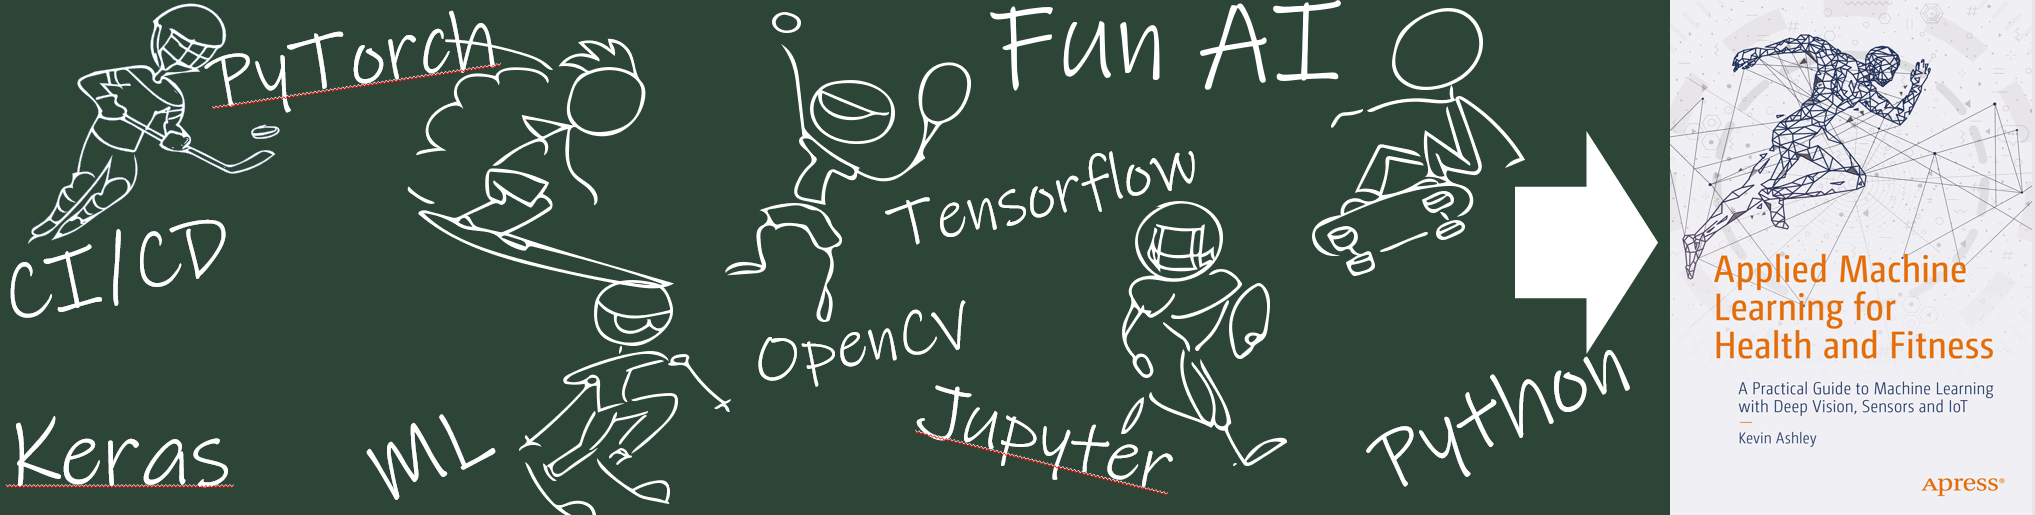 PyTorch
Fun AI
Tensorflow
CI/CD
OpenCV
Jupyter
Python
Keras
ML
Applied Machine
Learning for
Health and Fitness
A Practical Guide to Machine Learning
with Deep Vision, Sensors and IoT
Kevin Ashley
Apress®